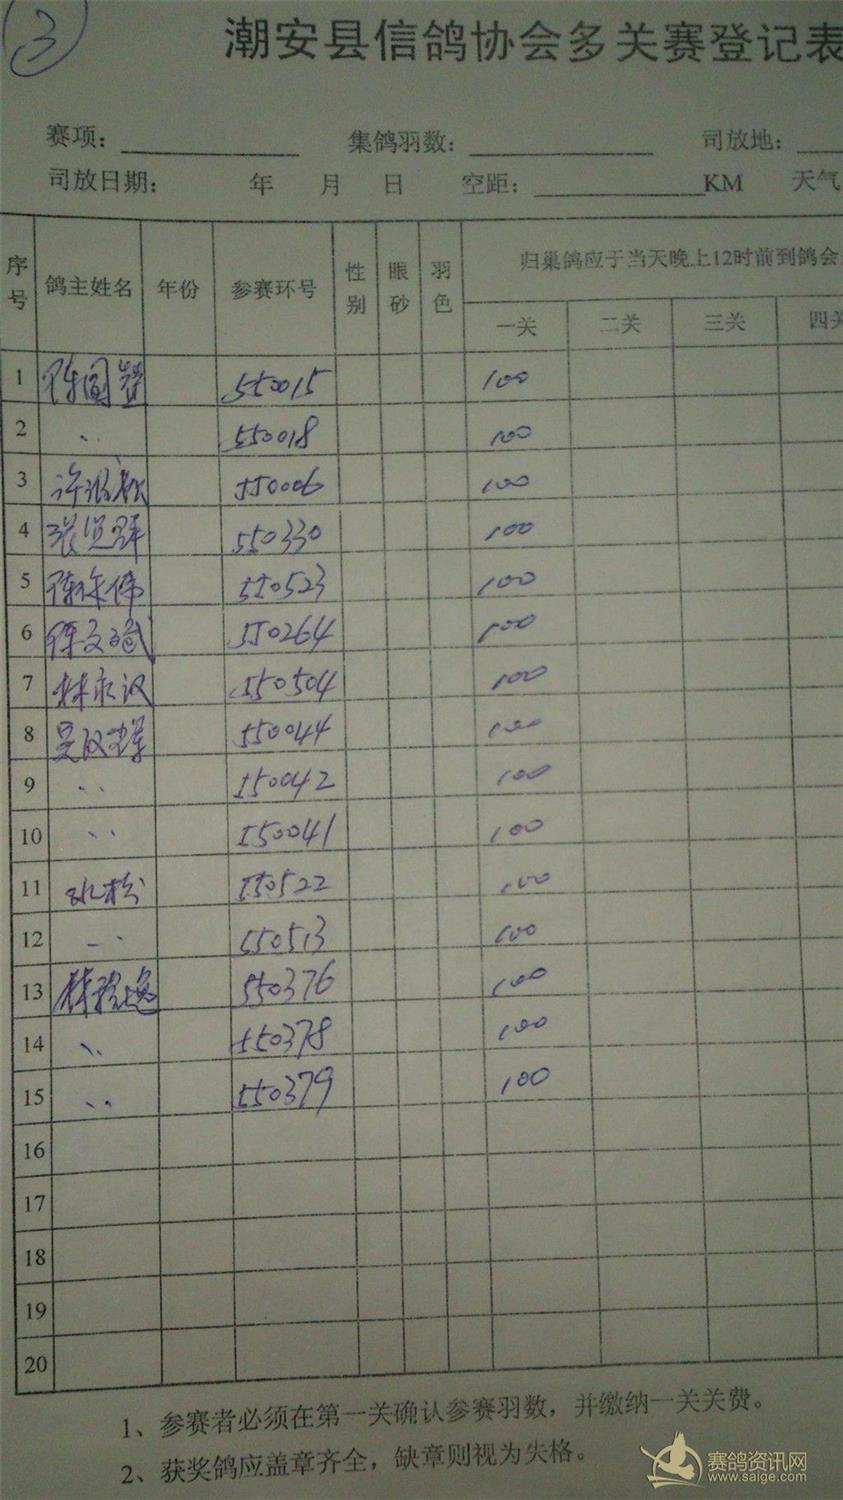 3
潮安县信鸽协会多关赛登记表
赛项： 集鸽羽数： 司放地：
司放日期： 年 月 日 空距： KM 天气
序号 鸽主姓名 年份 参赛环号 性别 眼砂 羽色 归巢鸽应于当天晚上12时前到鸽会
一关 二关 三关 四关
1 550015 100
2 〃 550018 100
3 550006 100
4 550330 100
5 550523 100
6 550264 100
7 林永汉 550504 100
8 550044 100
9 〃 550042 100
10 〃 550041 100
11 550522 100
12 〃 550513 100
13 550376 100
14 〃 550378 100
15 〃 550379 100
16
17
18
19
20
1、参赛者必须在第一关确认参赛羽数，并缴纳一关关费。
2、获奖鸽应盖章齐全，缺章则视为失格。
赛鸽资讯网
www.saige.com